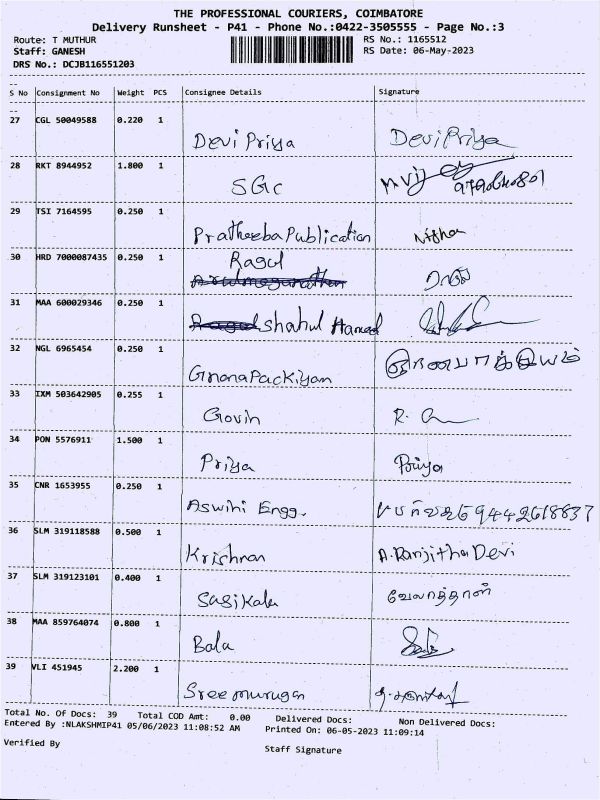 THE PROFESSIONAL COURIERS, COIMBATORE
Delivery Runsheet - P41 - Phone No.:0422-3505555 - Page No.:3
Route: T MUTHUR RS No.: 1165512
Staff: GANESH RS Date: 06-May-2023
DRS No.: DCJB116551203
S No Consignment No Weight PCS Consignee Details Signature
27 CGL 50049588 0.220 1
Devi Priya Devi Priya
28 RKT 8944952 1.800 1
SGC
29 TSI 7164595 0.250 1
Pratheeba Publication Nisha
30 HRD 7000087435 0.250 1 Ragul
ராகுல்
31 MAA 600029346 0.250 1
Shahul Hameed
32 NGL 6965454 0.250 1
Gnana Packiyam ஞானபாக்கியம்
33 IXM 503642905 0.255 1
Govin R.
34 PON 5576911 1.500 1
Priya Priya
35 CNR 1653955 0.250 1
Aswini Engg. 9442618837
36 SLM 319118588 0.500 1
Krishnan A. Ranjitha Devi
37 SLM 319123101 0.400 1
Sasikala வேலாத்தாள்
38 MAA 859764074 0.800 1
Bala
39 VLI 451945 2.200 1
Sree murugan
Total No. Of Docs: 39 Total COD Amt: 0.00 Delivered Docs: Non Delivered Docs:
Entered By :NLAKSHMIP41 05/06/2023 11:08:52 AM Printed On: 06-05-2023 11:09:14
Verified By Staff Signature